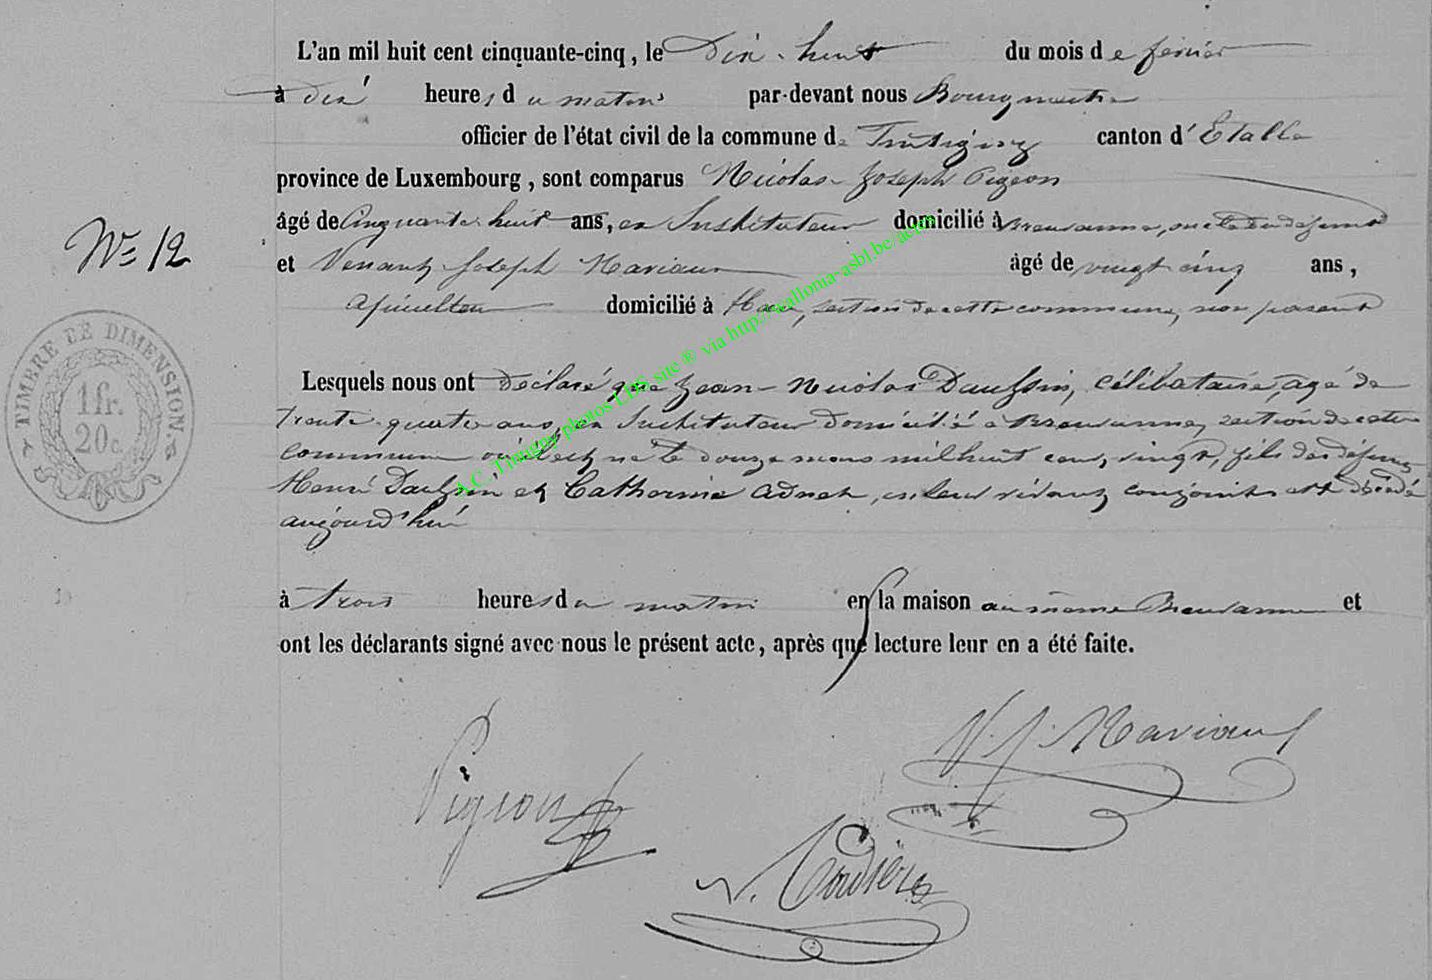 L'an mil huit cent cinquante-cinq, le Dix-huit du mois de février
à dix heures du matin par-devant nous Bourgmestre
officier de l'état civil de la commune de Tintigny canton d'Etalle
province de Luxembourg, sont comparus Nicolas Joseph Pigeon
âgé de Cinquante huit ans, ex Instituteur domicilié à Breuvanne, oncle du défunt
N° 12
et Venant Joseph Naviaux âgé de vingt cinq ans,
domicilié à Han, section de cette commune, non parent
TIMBRE DE DIMENSION.
1 fr.
20 c.
Lesquels nous ont déclaré que Jean-Nicolas Dauphin, célibataire, agé de
trente-quatre ans, ex Instituteur domicilié à Breuvanne, section de cette
commune où il est né le douze mars mil huit cent vingt, fils des défunts
Henri Dauphin et Catherine Adnet, en leur vivant conjoints est décédé
aujourd'hui
à trois heures du matin en la maison au même Breuvanne et
ont les déclarants signé avec nous le présent acte, après que lecture leur en a été faite.
V. J. Naviaux
Pigeon
A.C. Tintigny photos LDS site ® via http://wallonia-asbl.be/actes